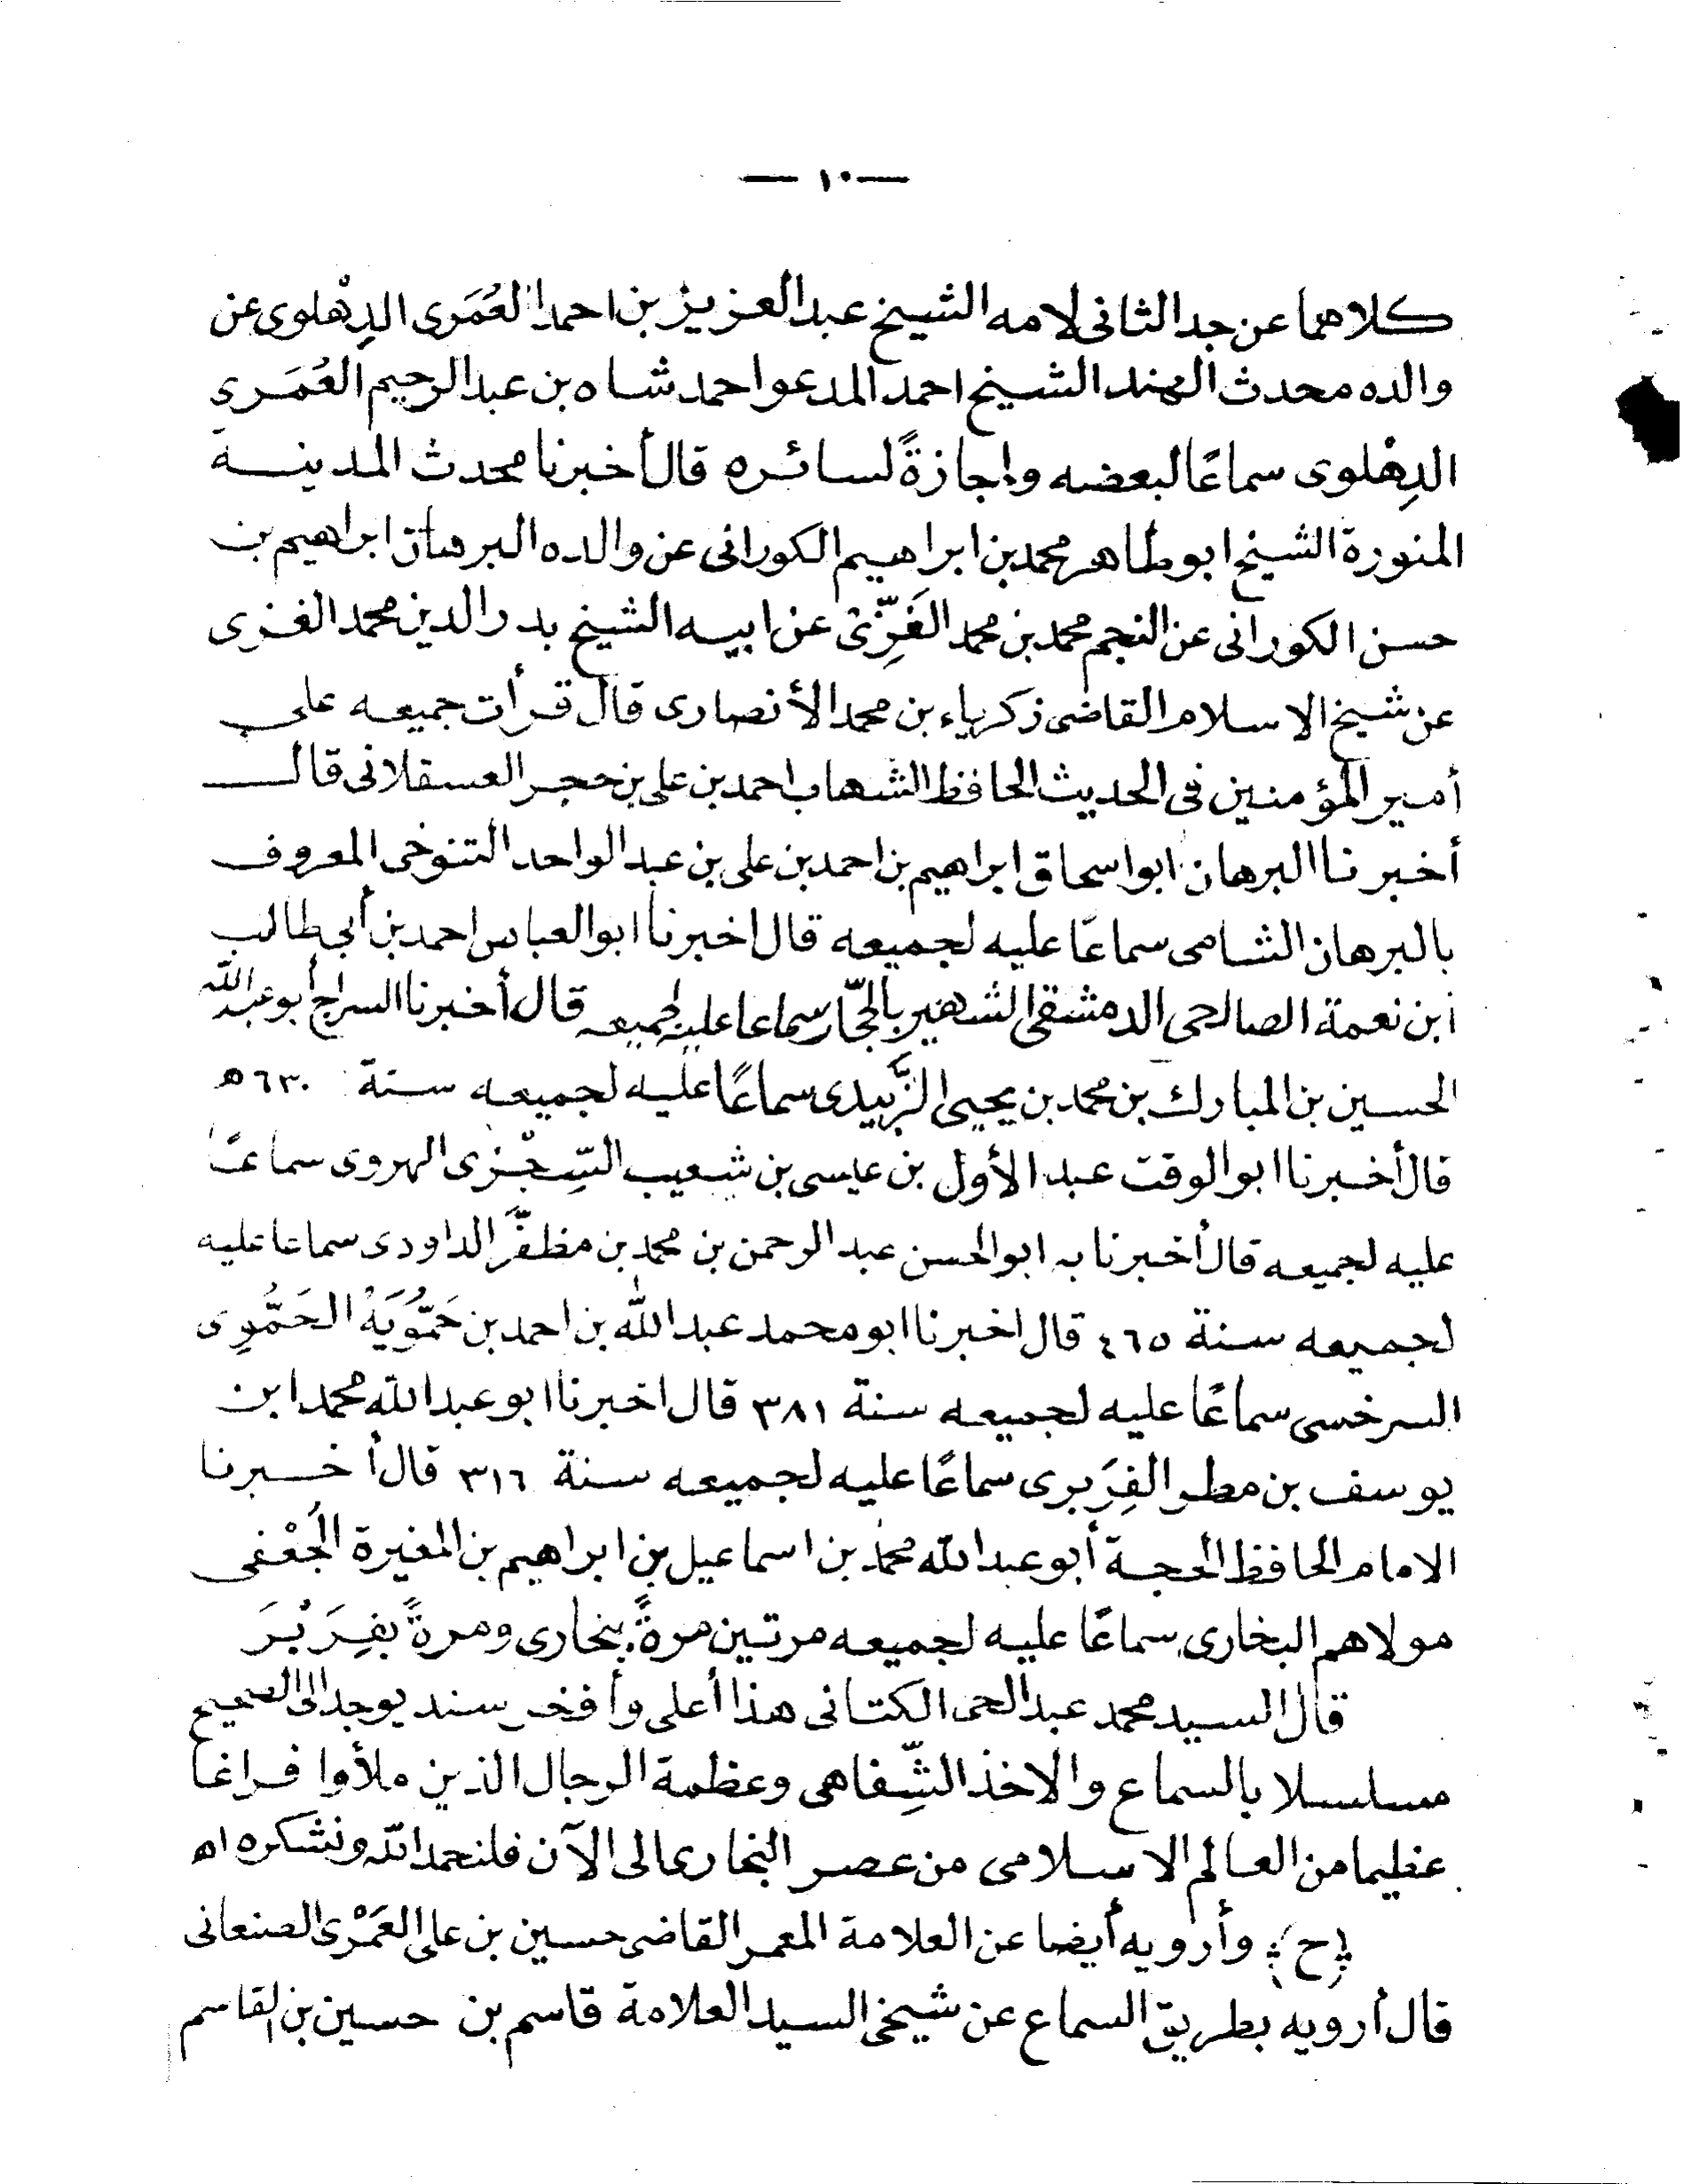 — ١٠ —
كلاهما عن جد الثانى لامه الشيخ عبد العزيز بن احمد العُمَرى الدِهْلوى عن
والده محدث الهند الشيخ احمد المدعو احمد شاه بن عبد الرحيم العُمَرى
الدِهْلوى سماعًا لبعضه وإجازةً لسائره قال أخبرنا محدث المدينة
المنورة الشيخ ابوطاهر محمد بن ابراهيم الكورانى عن والده البرهان ابراهيم بن
حسن الكورانى عن النجم محمد بن محمد الغَزِّى عن ابيه الشيخ بدر الدين محمد الغزى
عن شيخ الاسلام القاضى زكرياء بن محمد الأنصارى قال قرأت جميعه على
أمير المؤمنين فى الحديث الحافظ الشهاب احمد بن على بن حجر العسقلانى قال
أخبرنا البرهان ابواسحاق ابراهيم بن احمد بن على بن عبد الواحد التنوخى المعروف
بالبرهان الشامى سماعًا عليه لجميعه قال اخبرنا ابوالعباس احمد بن أبى طالب
ابن نعمة الصالحى الدمشقى الشهير بالحجّار سماعا عليه لجميعه قال أخبرنا السراج أبو عبد الله
الحسين بن المبارك بن محمد بن يحيى الزَّبيدى سماعًا عليه لجميعه سنة ٦٣٠ ه
قال أخبرنا ابوالوقت عبد الأول بن عيسى بن شعيب السِّجْزى الهروى سماعًا
عليه لجميعه قال أخبرنا به ابوالحسن عبد الرحمن بن محمد بن مظفَّر الداودى سماعا عليه
لجميعه سنة ٤٦٥ قال اخبرنا ابومحمد عبد الله بن احمد بن حَمُّويَهْ الحَمُّوِى
السرخسى سماعًا عليه لجميعه سنة ٣٨١ قال اخبرنا ابو عبد الله محمد ابن
يوسف بن مطر الفِرَبرى سماعًا عليه لجميعه سنة ٣١٦ قال أخبرنا
الامام الحافظ الحجة أبو عبد الله محمد بن اسماعيل بن ابراهيم بن المغيرة الجُعْفى
مولاهم البخارى سماعًا عليه لجميعه مرتين مرةً ببخارى ومرةً بفِرَبْرَ
قال السيد محمد عبد الحى الكتانى هذا أعلى وأفخر سند يوجد الى الصحيح
مسلسلا بالسماع والاخذ الشِّفاهى وعظمة الرجال الذين ملأوا فراغا
عظيما من العالم الاسلامى من عصر البخارى الى الآن فلنحمد الله ونشكره اه
(ح) وأرويه أيضا عن العلامة المعمر القاضى حسين بن على العَمْرى الصنعانى
قال أرويه بطريق السماع عن شيخى السيد العلامة قاسم بن حسين بن القاسم